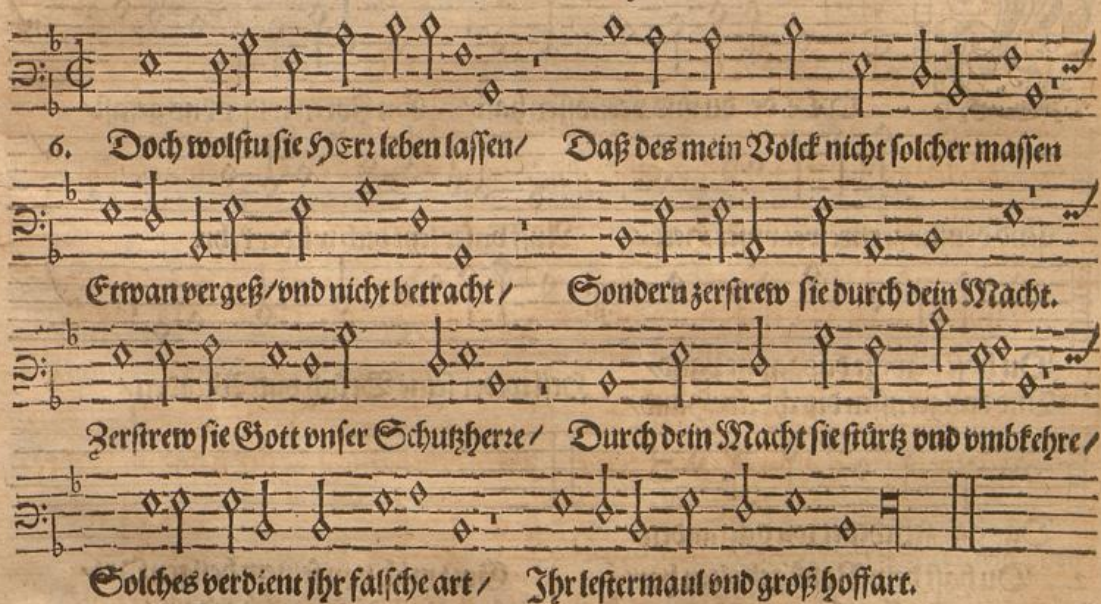 6. Doch wolstu sie HErr leben lassen/ Daß des mein Volck nicht solcher massen
Etwan vergeß/vnd nicht betracht/ Sondern zerstrew sie durch dein Macht.
Zerstrew sie Gott vnser Schutzherre/ Durch dein Macht sie stürtz vnd vmbkehre/
Solches verdient jhr falsche art/ Ihr lestermaul vnd groß hoffart.